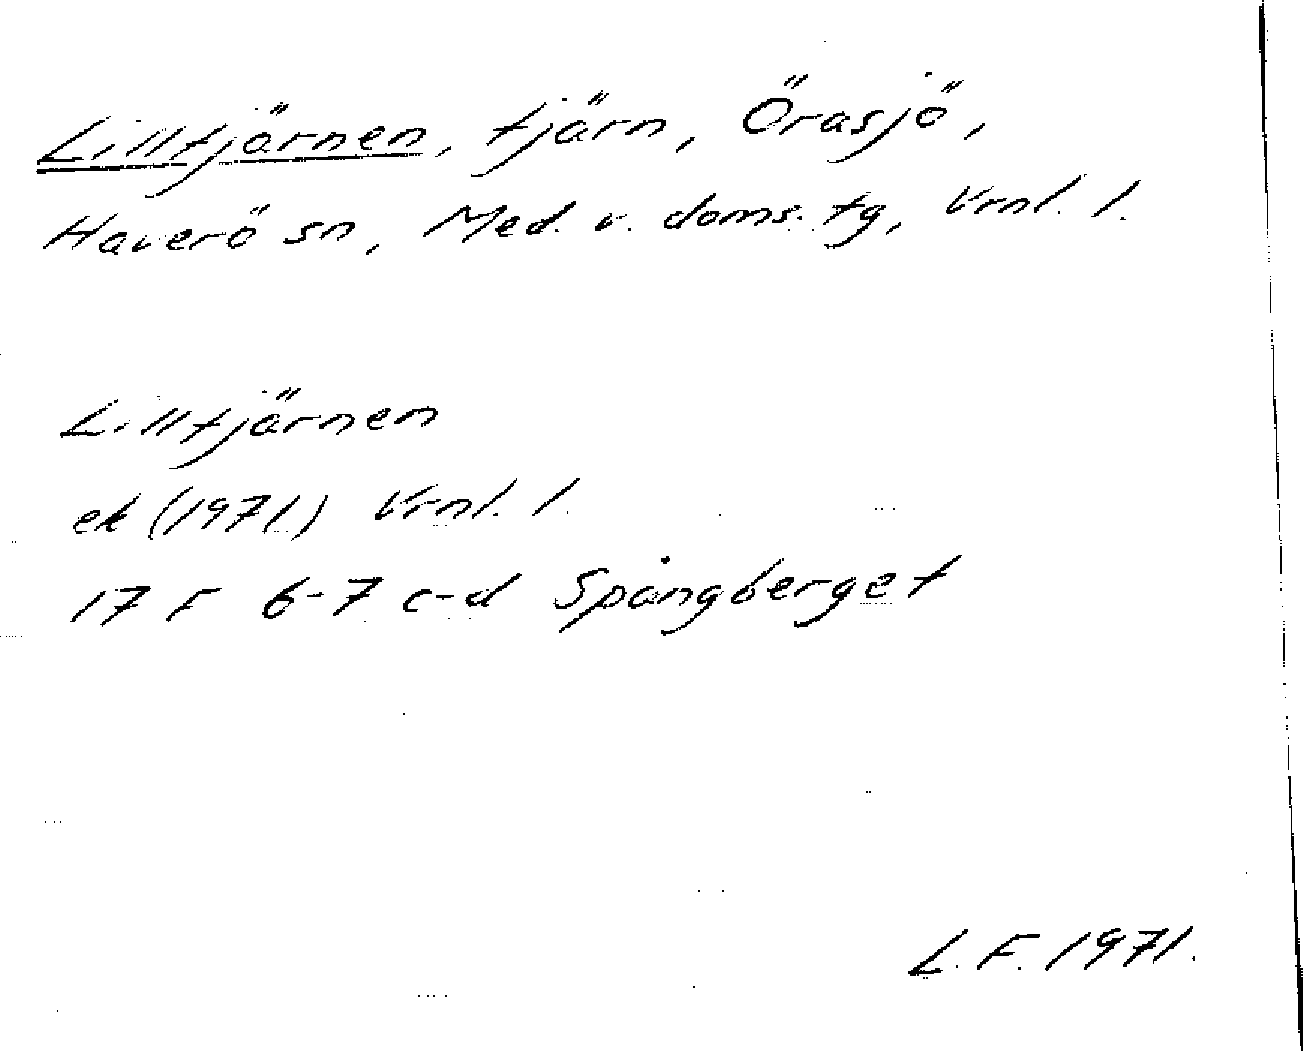 Lilltjärnen, tjärn, Örasjö,
Haverö sn, Med. v. doms. tg, Vrnl. l.
Lilltjärnen
ek (1971) Vrnl. l.
17 F 6-7 c-d Spångberget
L.F. 1971.